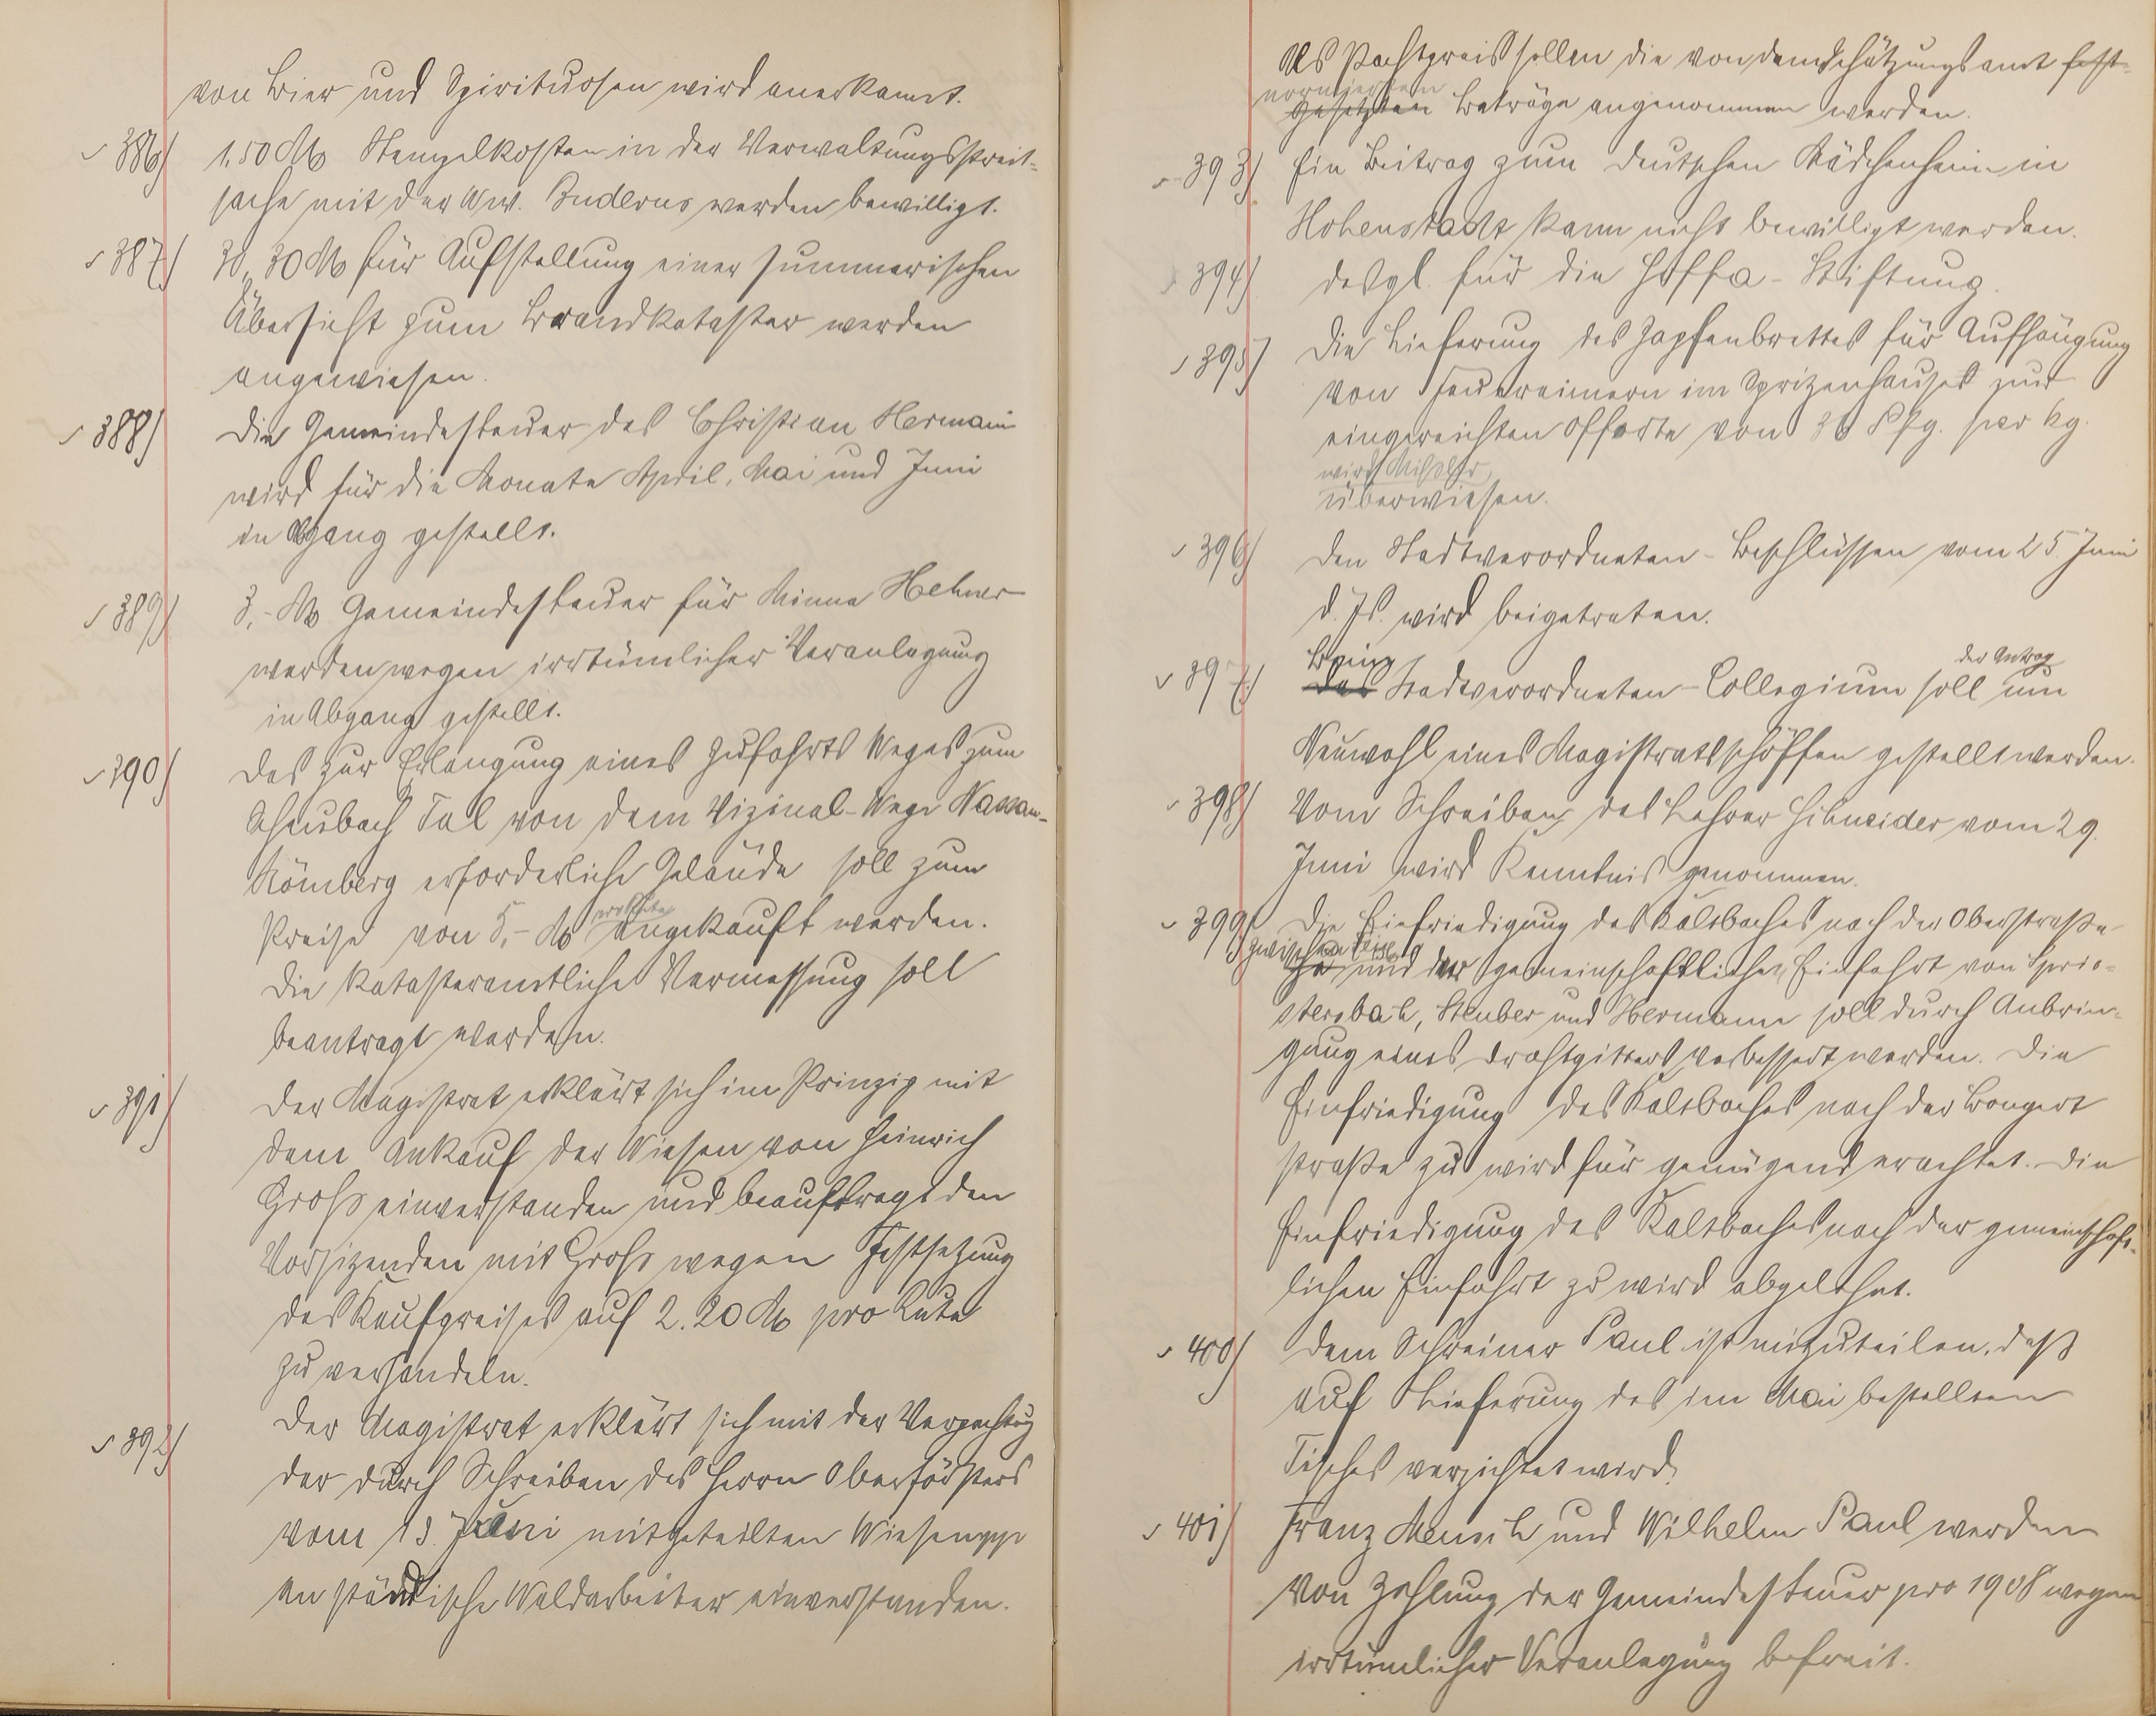 von Bier und Spirituosen wird anerkannt.
386) 1.50 M Stempelkosten in der Verwaltungsstreit-
sache mit der Ww. Buderus werden bewilligt.
387) 30,30 M für Aufstellung einer summarischen
Übersicht zum Brandkataster werden
angewiesen.
388) Die Gemeindesteuer des Christian Hermann
wird für die Monate April, Mai und Juni
in Abgang gestellt.
389) 3,- M Gemeindesteuer für Minna Hehner
werden wegen irrtümlicher Veranlagung
in Abgang gestellt.
390) Das zur Erlangung eines Zufahrts Weges zum
Tal von dem Vizinal-Wege Nassau-
Römberg erforderliche Gelände soll zum
Preise von 5,- M pro Rute angekauft werden.
Die katasteramtliche Vermessung soll
beantragt werden.
391) Der Magistrat erklärt sich im Prinzip mit
dem Ankauf der Wiesen von Heinrich
Groß einverstanden und beauftragt den
Vorsizenden mit Groß wegen Festsetzung
des Kaufpreises auf 2.20 M pro Rute
zu verhandeln.
392) Der Magistrat erklärt sich mit der Verpachtug
der durch Schreiben des Herrn Oberförsters
vom 13. Juni mitgeteilten
an städtische Waldarbeiter einverstanden.
Als Pachtpreis sollen die von dem Schätzungsamt fest-
normierten
gesetzten Beträge angenommen werden.
393) Ein Beitrag zum deutschen Mädchenheim in
Hohenstadt kann nicht bewilligt werden.
394) desgl. für die Hoffa-Stiftung.
395) Die Lieferung des Zapfenbrettes für Aufhängung
von Feuereimern im Sprizenhause zur
eingereichten Offerte von 36 Pfg. per kg.
wird
überwiesen.
396) Den Stadtverordneten-Beschlüssen vom 25. Juni
d. Js. wird beigetreten.
397.) Beim der Antrag
Das Stadtverordneten-Collegium soll um
Neuwahl eines Magistratsschöffen gestellt werden.
398) Vom Schreiben des Lehrer Schneider vom 29.
Juni wird Kenntnis genommen.
399) Die Einfriedigung des Kaltbaches nach der Oberstraße
zwischen
zu und der gemeinschaftlichen Einfahrt von
, Steuber und Hermann soll durch Anbrin-
gung eines Drahtgitters verbessert werden. Die
Einfriedigung des Kaltbaches nach der Bongert
straße zu wird für genügend erachtet. Die
Einfriedigung des Kaltbaches nach der gemeinschaft-
lichen Einfahrt zu wird abgelehnt.
400) Dem Schreiner Paul ist mizuteilen, daß
auf Lieferung des im Mai bestellten
Tisches verzichtet wird.
401) Franz Mensch und Wilhelm Paul werden
von Zahlung der Gemeindesteuer pro 1908 wegen
irrtümlicher Veranlagung befreit.